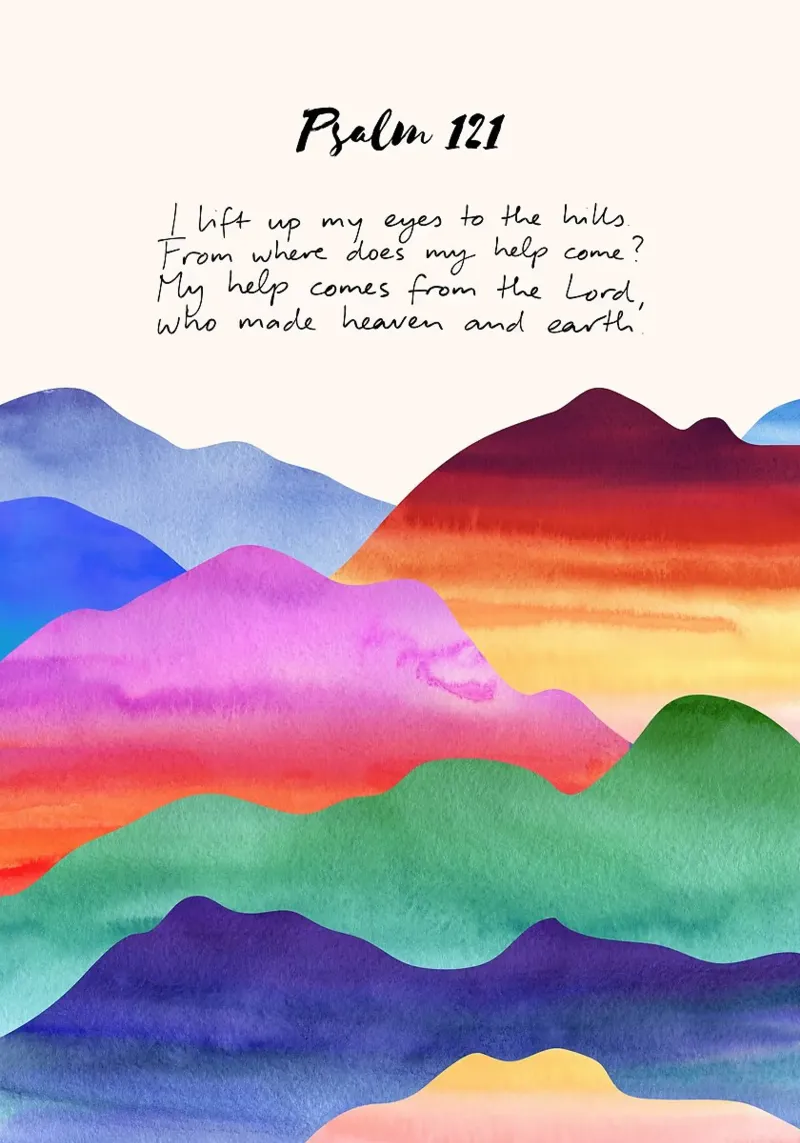 Psalm 121
I lift up my eyes to the hills.
From where does my help come?
My help comes from the Lord,
who made heaven and earth.